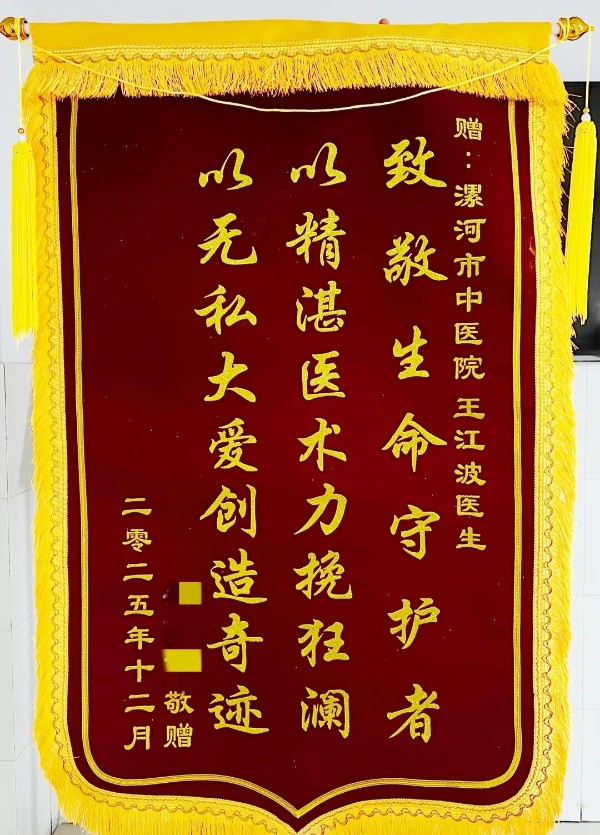 赠：漯河市中医院 王江波医生
致敬生命守护者
以精湛医术力挽狂澜
以无私大爱创造奇迹
敬赠
二零二五年十二月